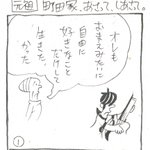 元祖 町田家、おさって、しあさって。
オレも
おまえみたいに
自由に
好きなこと
だけして
生きた
かった
1